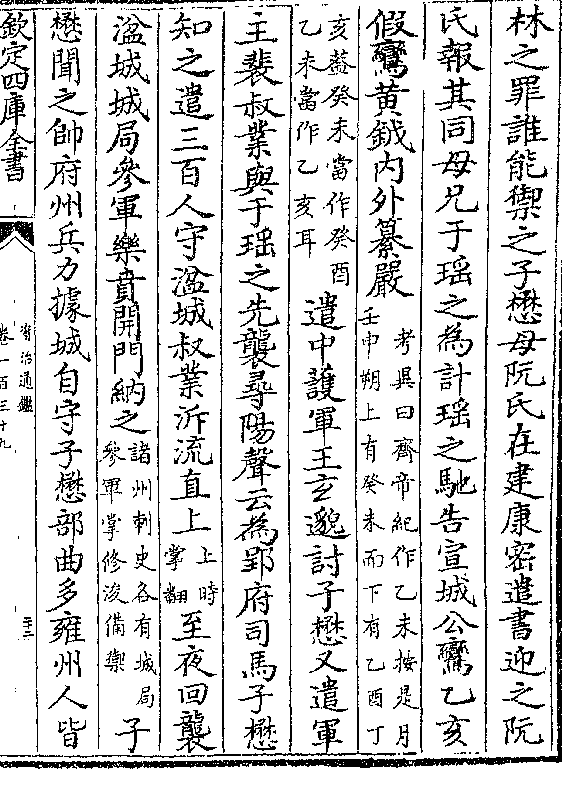 林之罪誰能禦之子懋母阮氏在建康密遣書迎之阮
氏報其同母兄于瑶之為計瑶之馳告宣城公鸞乙亥
假鸞黄鉞内外纂嚴
考異曰齊帝紀作乙未按是月
壬申朔上有癸未而下有乙酉丁
亥葢癸未當作癸酉
乙未當作乙亥耳
遣中護軍王玄邈討子懋又遣軍
主裴叔業與于瑶之先襲尋陽聲云為郢府司馬子懋
知之遣三百人守湓城叔業泝流直上
上時
掌翻
至夜回襲
湓城城局參軍樂賁開門納之
諸州刺史各有城局
參軍掌修浚備禦
子
懋聞之帥府州兵力據城自守子懋部曲多雍州人皆
欽定四庫全書
資治通鑑
卷一百三十九
三十二